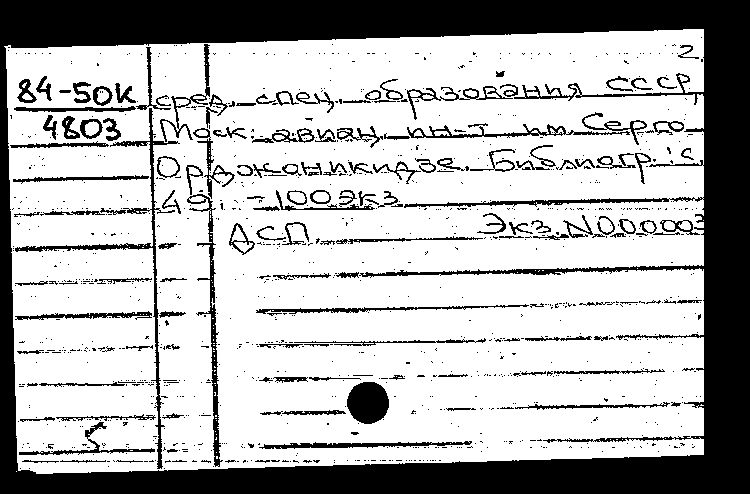 2
84-50К сред. спец. образования СССР,
4803 Моск. авиац. ин-т им. Серго
Орджоникидзе. Библиогр.: с.
49. - 100 экз
ДСП. Экз. N000003
5